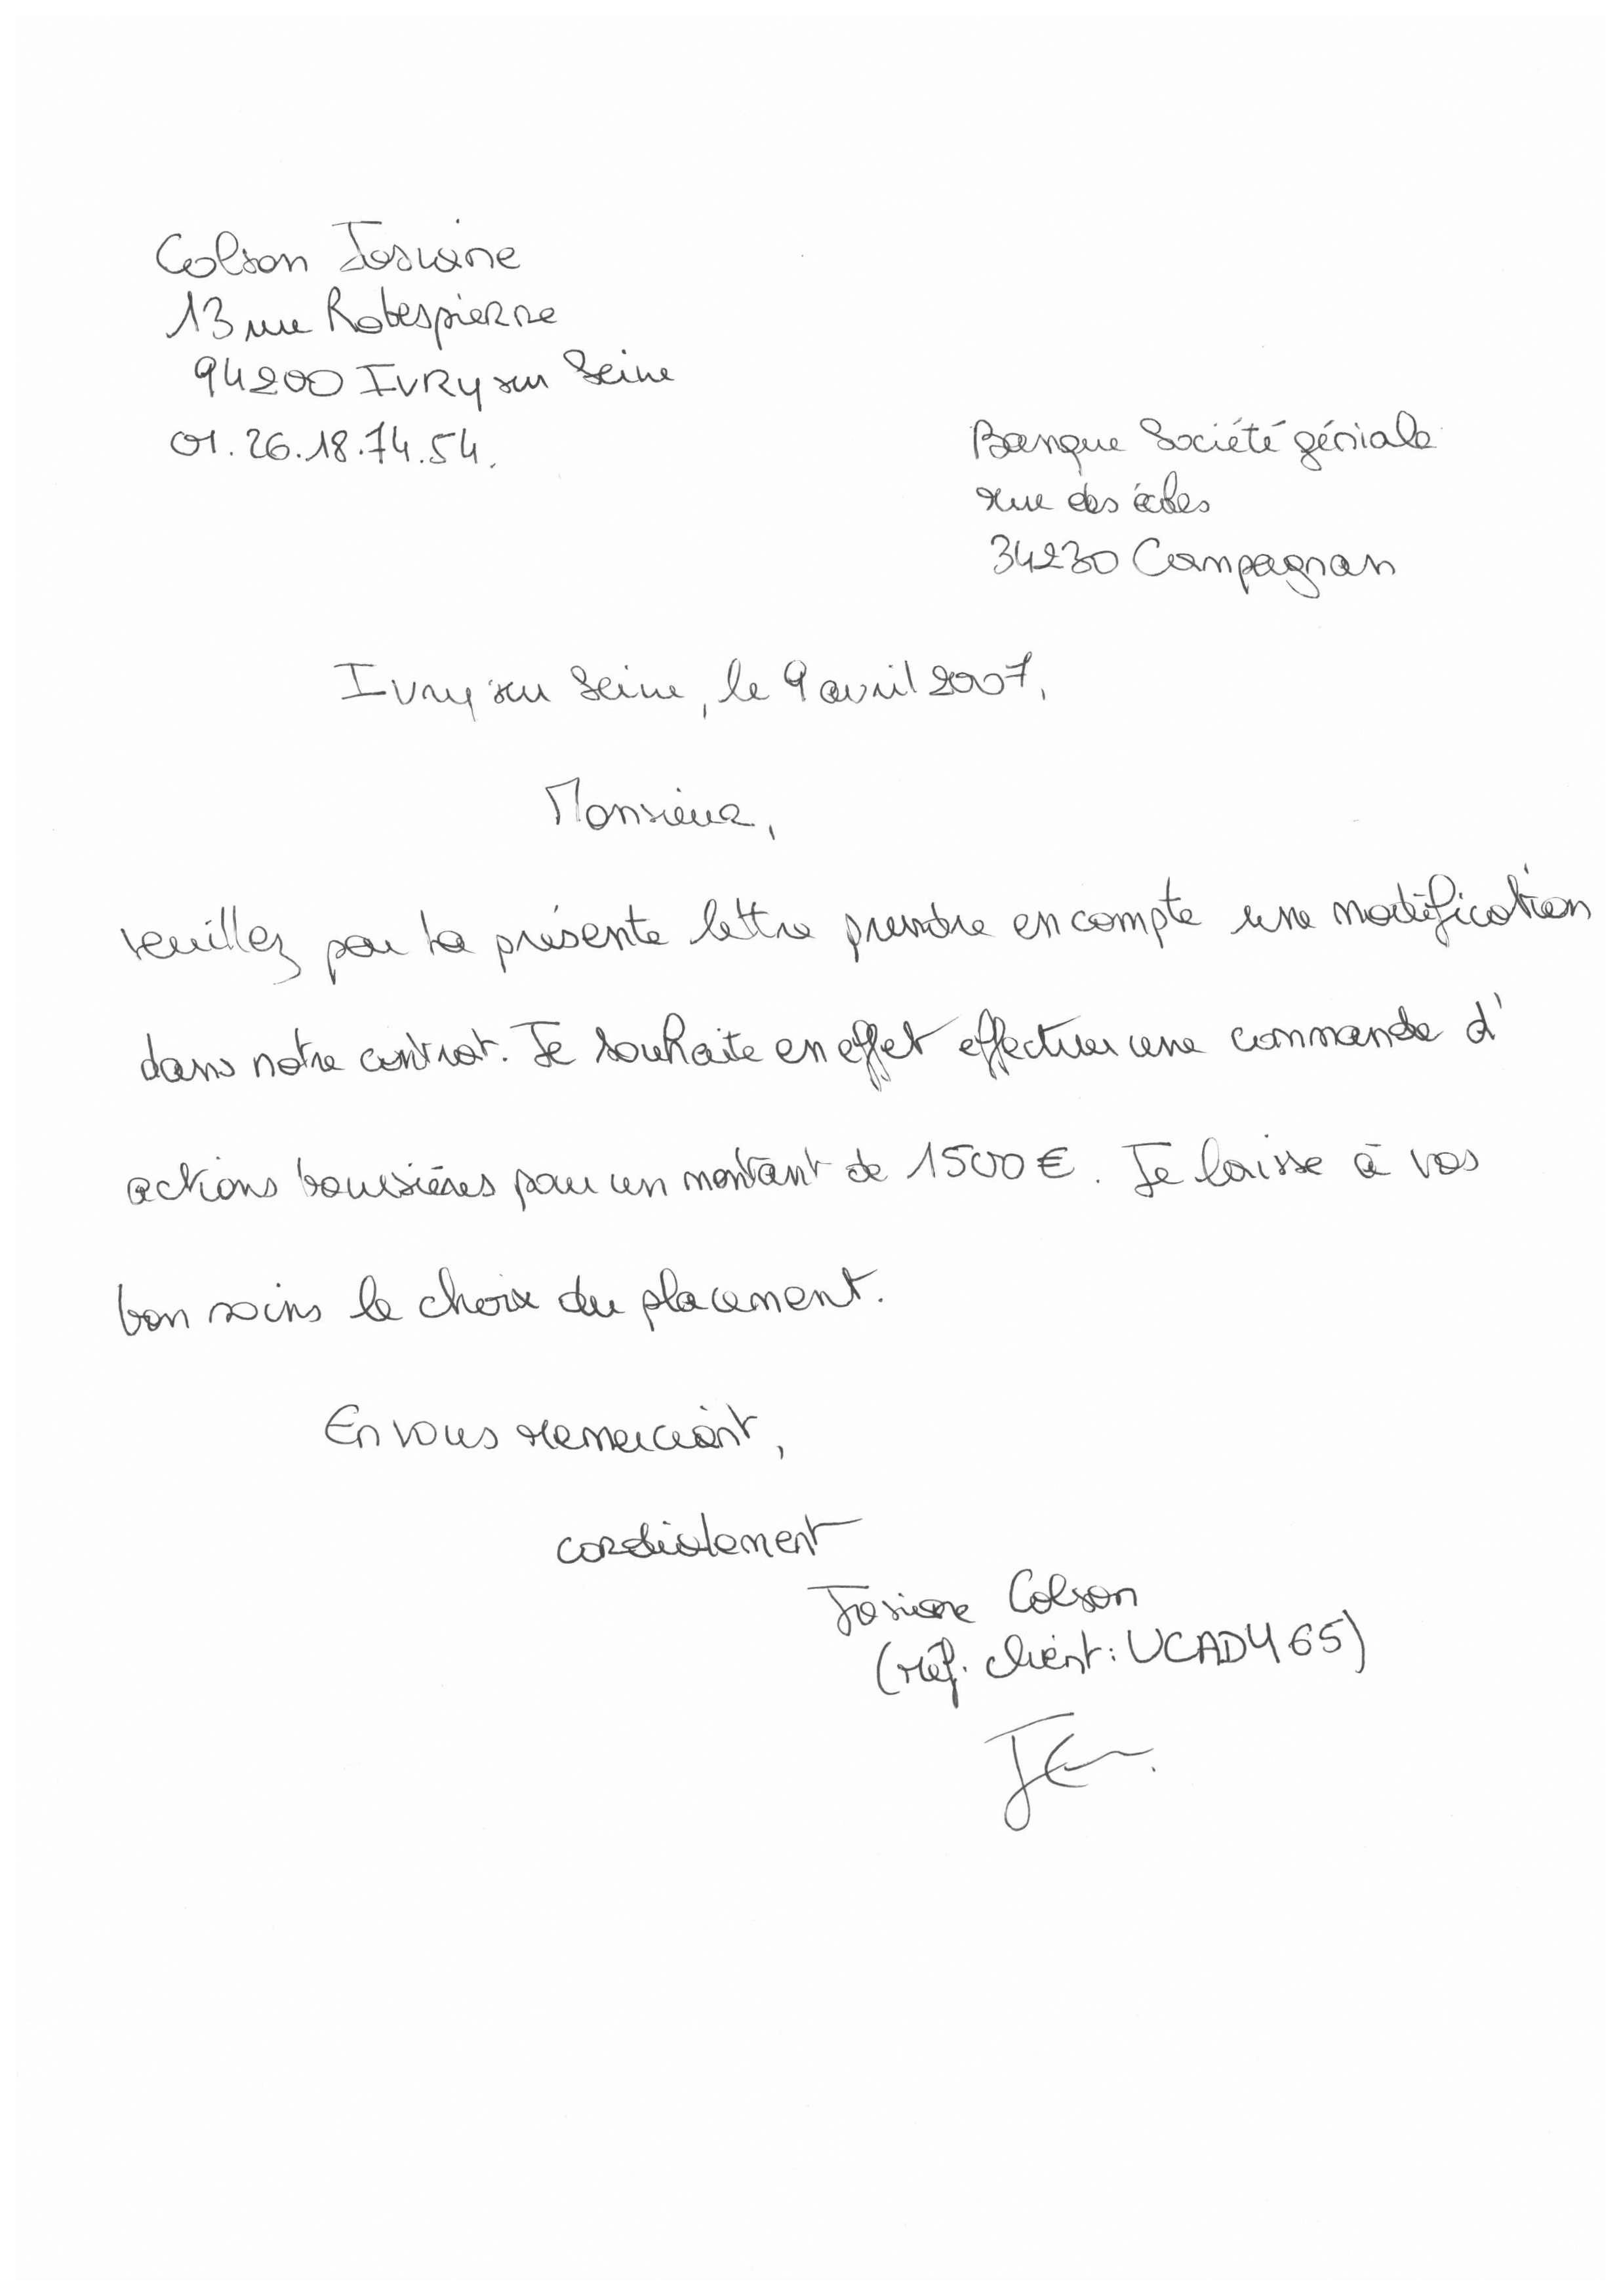 Colson Josiane
13 rue Robespierre
94200 IVRY sur Seine
01.26.18.74.54.
Banque Société géniale
rue des écoles
34230 Campagnan
Ivry sur Seine, le 9 avril 2007,
Monsieur,
veuillez par la présente lettre prendre en compte une modification
dans notre contrat. Je souhaite en effet effectuer une commande d'
actions boursières pour un montant de 1500 €. Je laisse à vos
bon soins le choix du placement.
En vous remerciant,
cordialement
Josiane Colson
(réf. client : UCADY65)